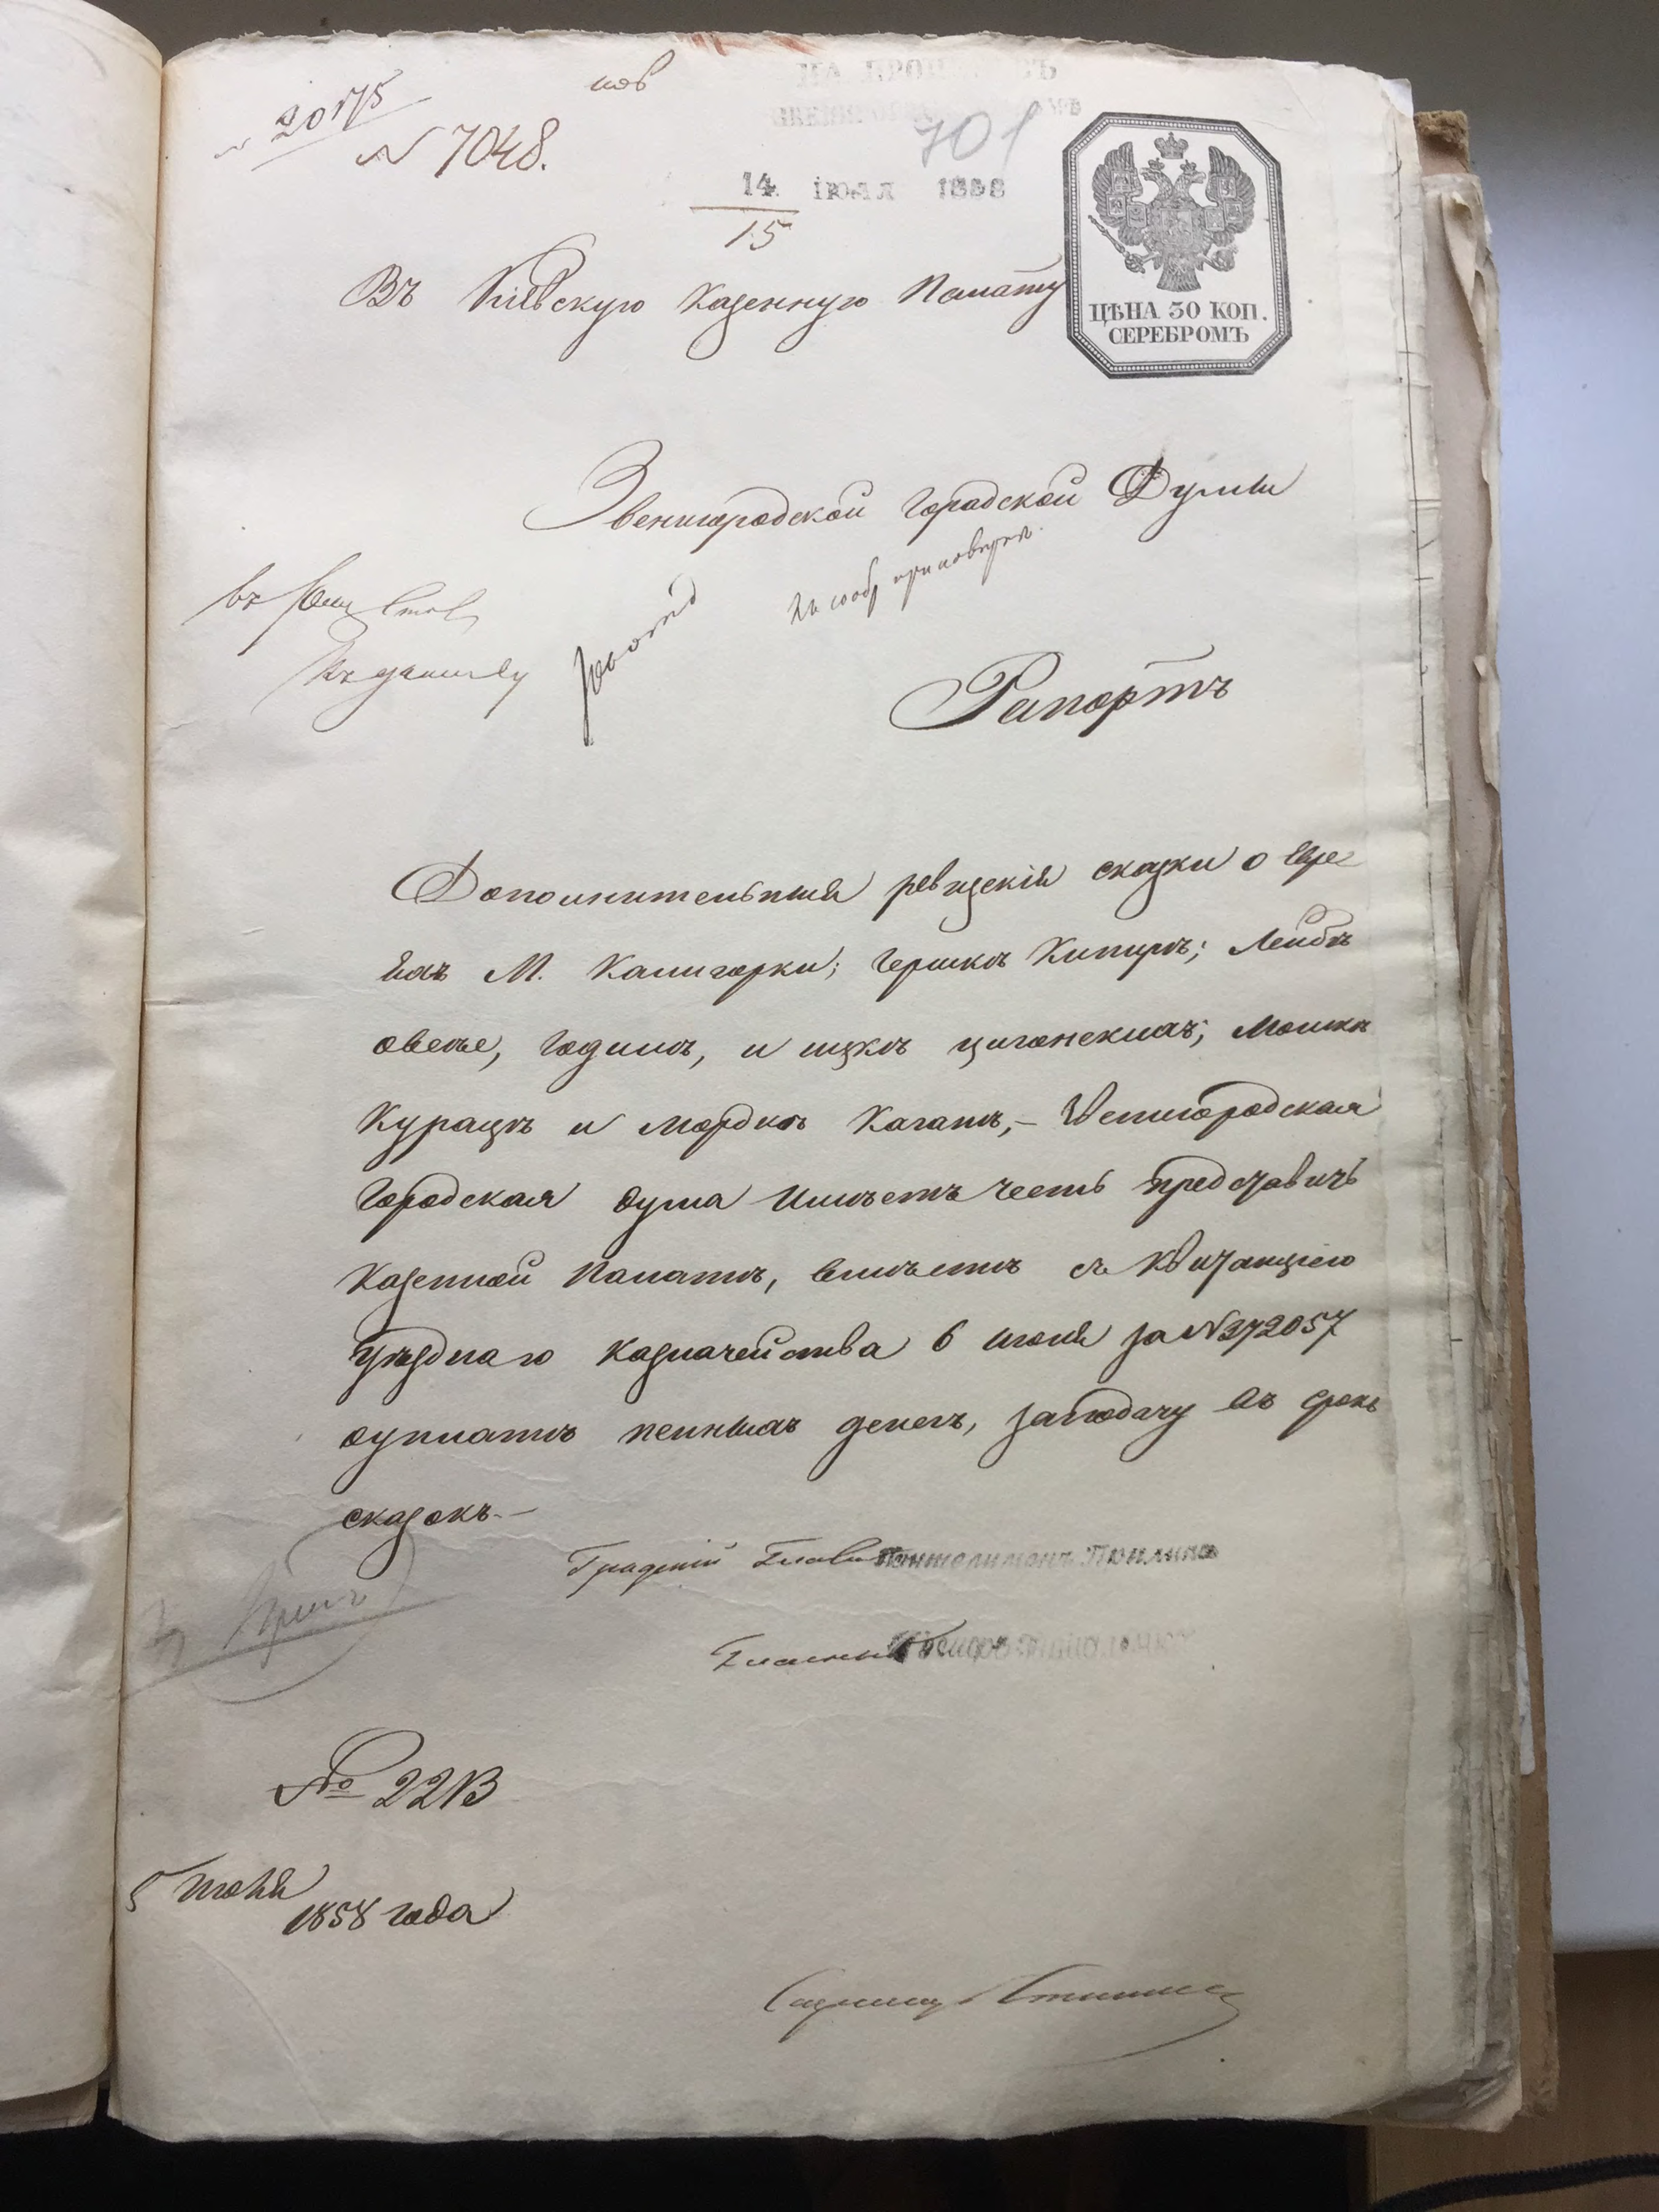 20175
N 7048.
701
14 іюля 1858
15
Въ Кіевскую Казенную Палату
ЦѢНА 30 КОП.
СЕРЕБРОМЪ
Звенигородской Городской Думы
Рапортъ
Дополнительныя ревизскія сказки о Евре
яхъ М. Калигорки; Гершкѣ Кипнисѣ; Лейбѣ
Годисѣ, и Ицкѣ Цигонскихъ; Мошкѣ
Курацѣ и Мордкѣ Каганѣ,- Звенигородская
Городская Дума Имѣетъ честь представить
Казенной Палатѣ, вмѣстѣ съ Квитанціею
Уѣзднаго Казначейства 6 Июня за N 372057
о уплатѣ пенныхъ денегъ, за подачу въ срокъ
сказокъ.-
Градскій Глава Пантелимонъ
Гласный
№ 2213
5 Июня
1858 года